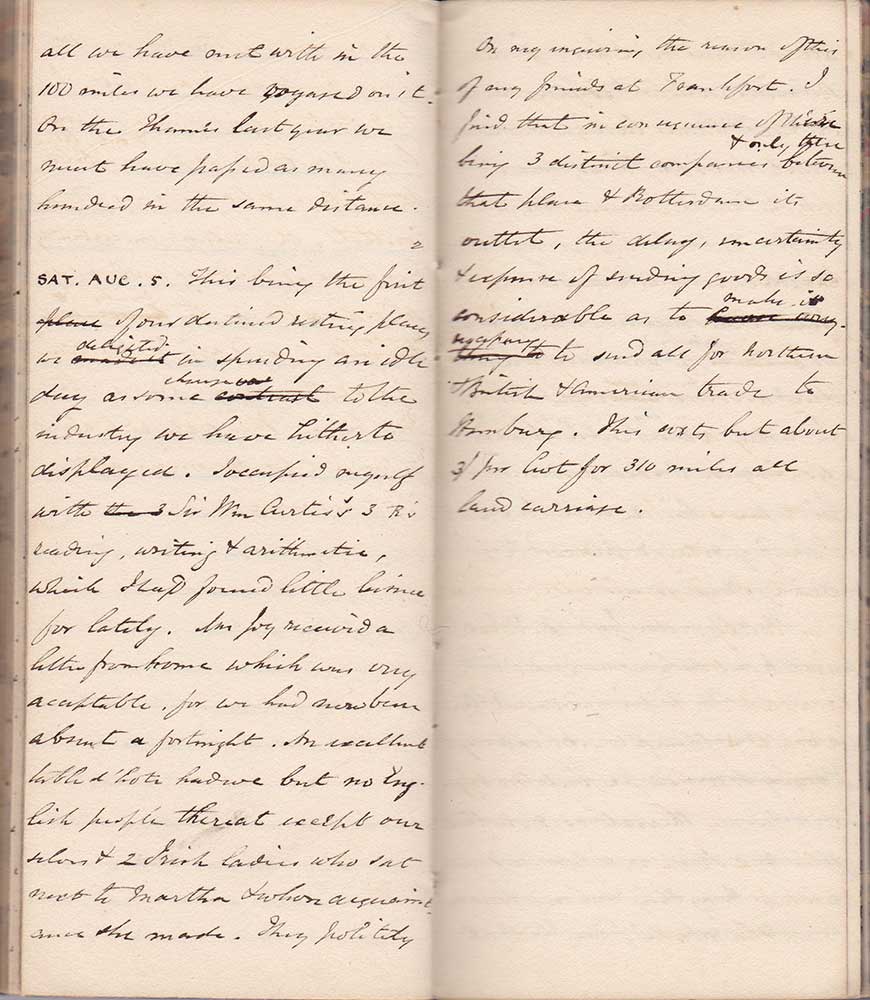 all we have met with in the
100 miles we have voyaged on it.
On the Thames last year we
must have passed as many
hundred in the same distance.
2
SAT. AUG. 5. This being the first
place of our destined resting places
delighted
we made it in spending an idle
day as some contrast to the
industry we have hitherto
displayed. I occupied myself
with the 3 Sir Wm Curtis's 3 R's
reading, writing & arithmetic,
which I had found little leisure
for lately. Mr Joy received a
letter from home which was very
acceptable. for we had now been
absent a fortnight. An excellent
table d'hote had we but no Eng-
lish people thereat except our
selves & 2 Irish ladies who sat
next to Martha & whose acquaint-
ance she made. They politely
On my inquiring the reason of this
of my friends at Frankfort. I
find that in consequence of there
& only there
being 3 distinct companies between
that place & Rotterdam its
outlet, the delay, uncertainty
& expense of sending goods is so
make it
considerable as to
necessary
to send all for northern
British & American trade to
Hamburg. This costs but about
3/ per Cwt for 310 miles all
land carriage.